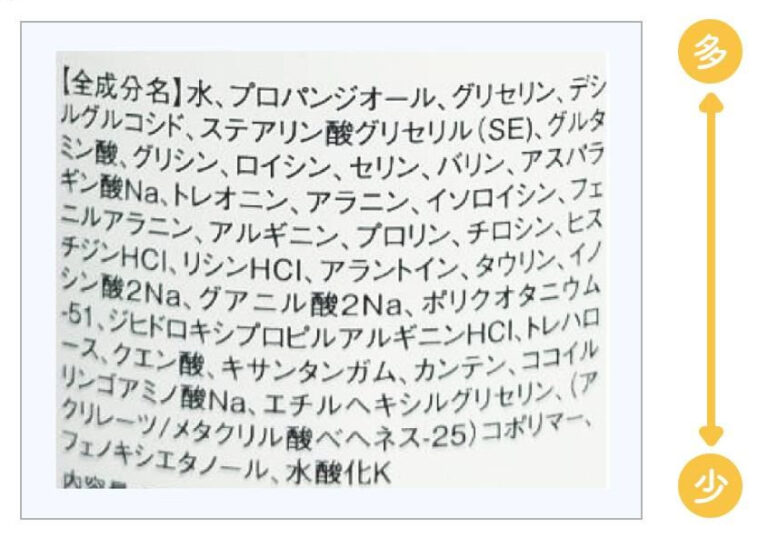 【全成分名】水、プロパンジオール、グリセリン、デシ
ルグルコシド、ステアリン酸グリセリル(SE)、グルタ
ミン酸、グリシン、ロイシン、セリン、バリン、アスパラ
ギン酸Na、トレオニン、アラニン、イソロイシン、フェ
ニルアラニン、アルギニン、プロリン、チロシン、ヒス
チジンHCl、リシンHCl、アラントイン、タウリン、イノ
シン酸2Na、グアニル酸2Na、ポリクオタニウム
-51、ジヒドロキシプロピルアルギニンHCl、トレハロ
ース、クエン酸、キサンタンガム、カンテン、ココイル
リンゴアミノ酸Na、エチルヘキシルグリセリン、(ア
クリレーツ/メタクリル酸ベヘネス-25)コポリマー、
フェノキシエタノール、水酸化K
内容量
多
少